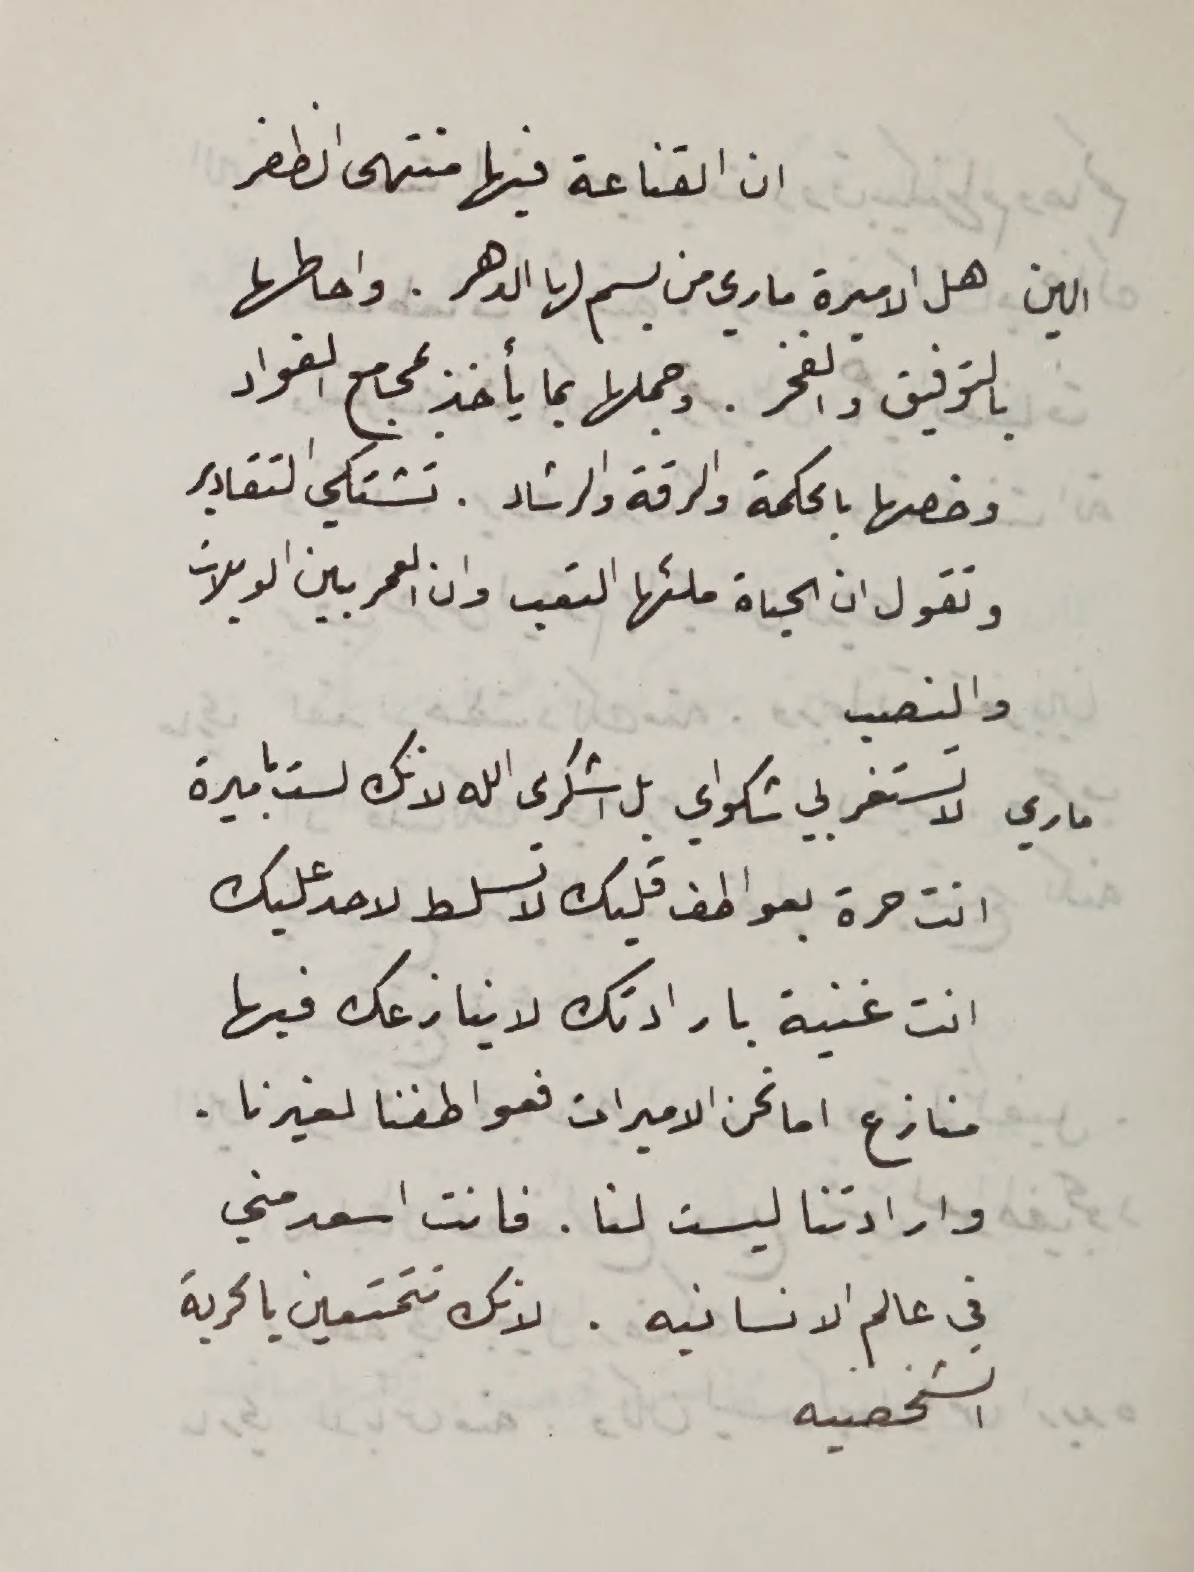 ان القناعة فيها منتهى الظفر
الين هل الاميرة ماري من بسم لها الدهر . واحاطها
بالتوفيق والفخر . وجملها بما يأخذ بمجامع الفواد
وخصها بالحكمة والرقة والرشاد . تشتكي التقادير
وتقول ان الحياة ملئها التعب وان العمر بين الويلات
والنصب
ماري لا تستغربي شكواي بل اشكري الله لانك لست باميرة
انت حرة بعواطف قلبك لا تسلط لاحد عليك
انت غنية بارادتك لا ينازعك فيها
منازع اما نحن الاميرات فعواطفنا لغيرنا .
وارادتنا ليست لنا . فانت اسعد مني
في عالم الانسانيه . لانك تتمتعين بالحرية
الشخصيه